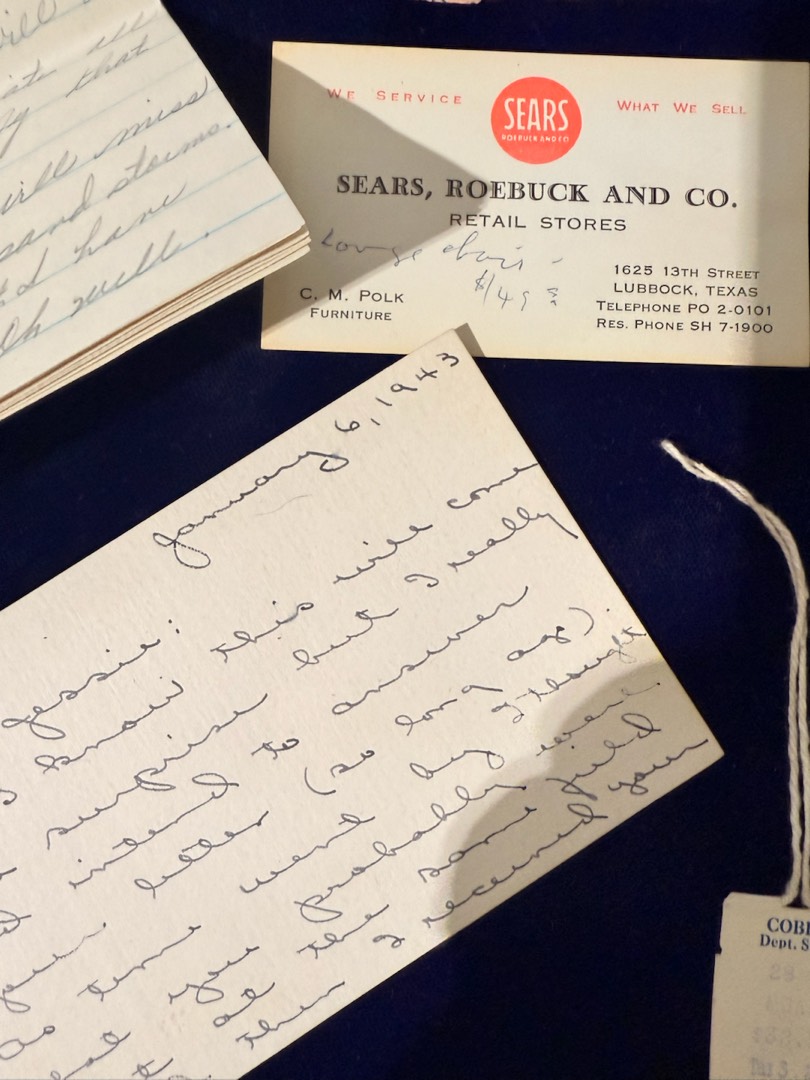 will
that
will miss
sand storms.
I have
Oh well.
WE SERVICE
SEARS
ROEBUCK AND CO
WHAT WE SELL
SEARS, ROEBUCK AND CO.
RETAIL STORES
Lounge chair -
$149
C. M. POLK
FURNITURE
1625 13TH STREET
LUBBOCK, TEXAS
TELEPHONE PO 2-0101
RES. PHONE SH 7-1900
January 6, 1943
Jessie: this will come
know
surprise but I really
intend to answer
your letter (so long ago)
As time went by I thought
you probably were
at the same field
then I received your
COB
Dept. S